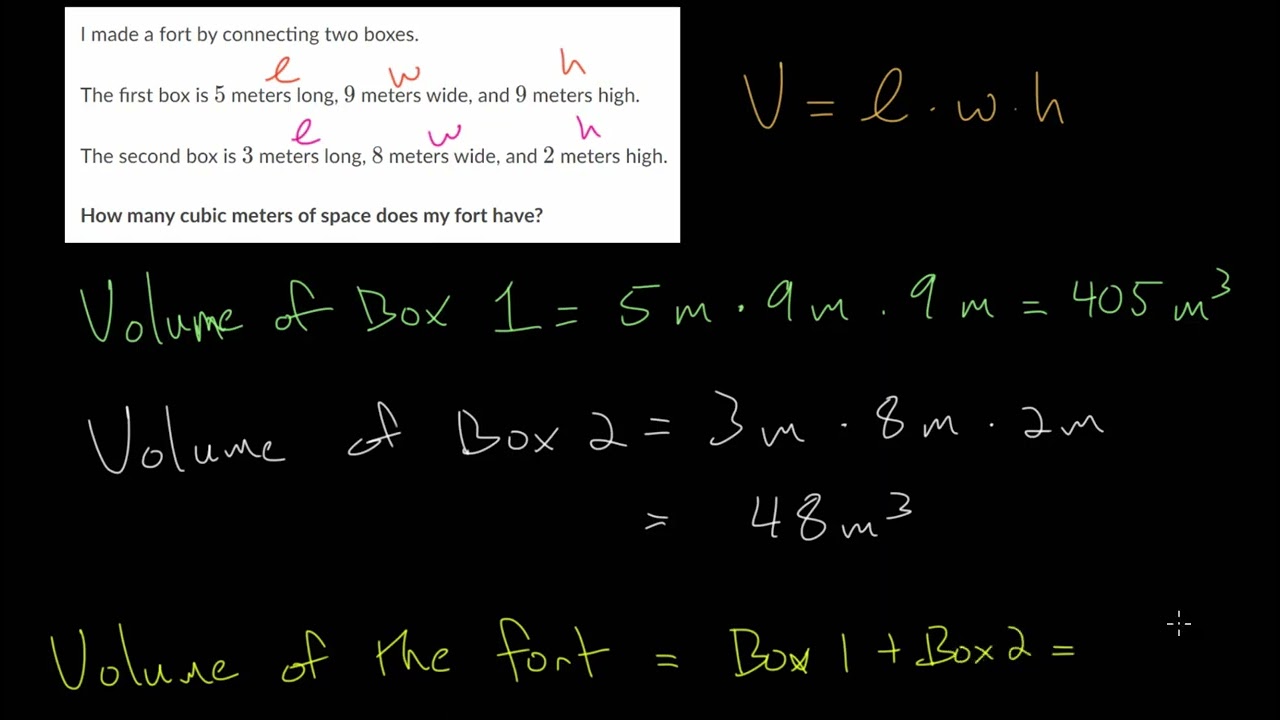 I made a fort by connecting two boxes.
l w h
The first box is 5 meters long, 9 meters wide, and 9 meters high.
l w h
The second box is 3 meters long, 8 meters wide, and 2 meters high.
How many cubic meters of space does my fort have?
V = l · w · h
Volume of Box 1 = 5 m · 9 m · 9 m = 405 m³
Volume of Box 2 = 3 m · 8 m · 2 m
= 48 m³
Volume of the fort = Box 1 + Box 2 =